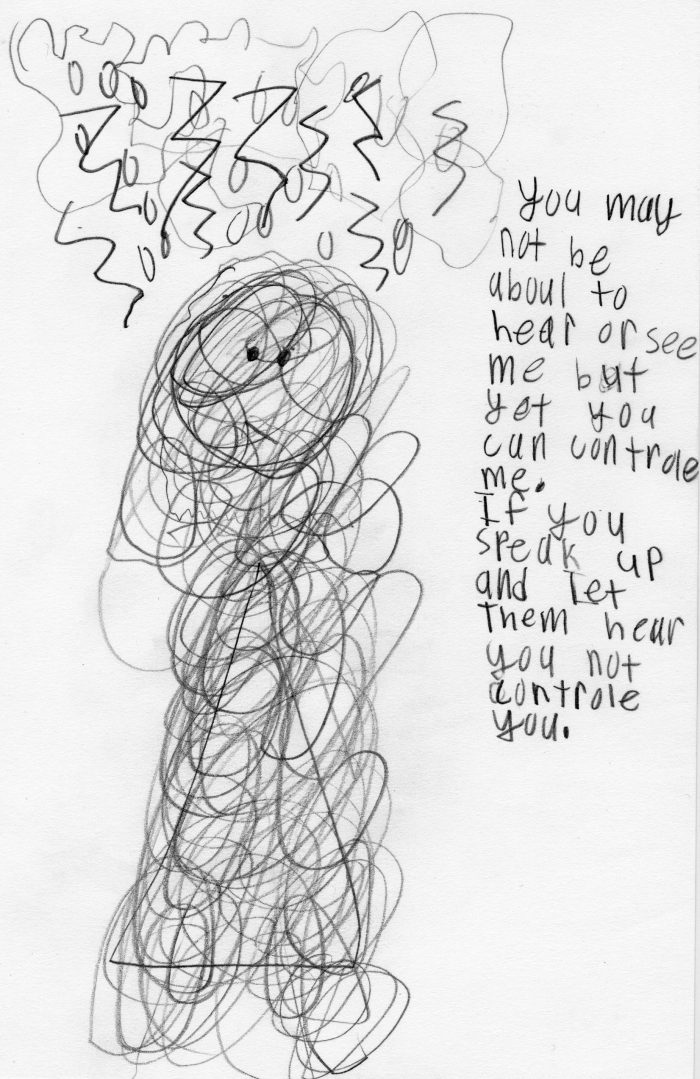 you may
not be
about to
hear or see
me but
yet you
can controle
me.
If you
speak up
and let
them hear
you not
controle
you.